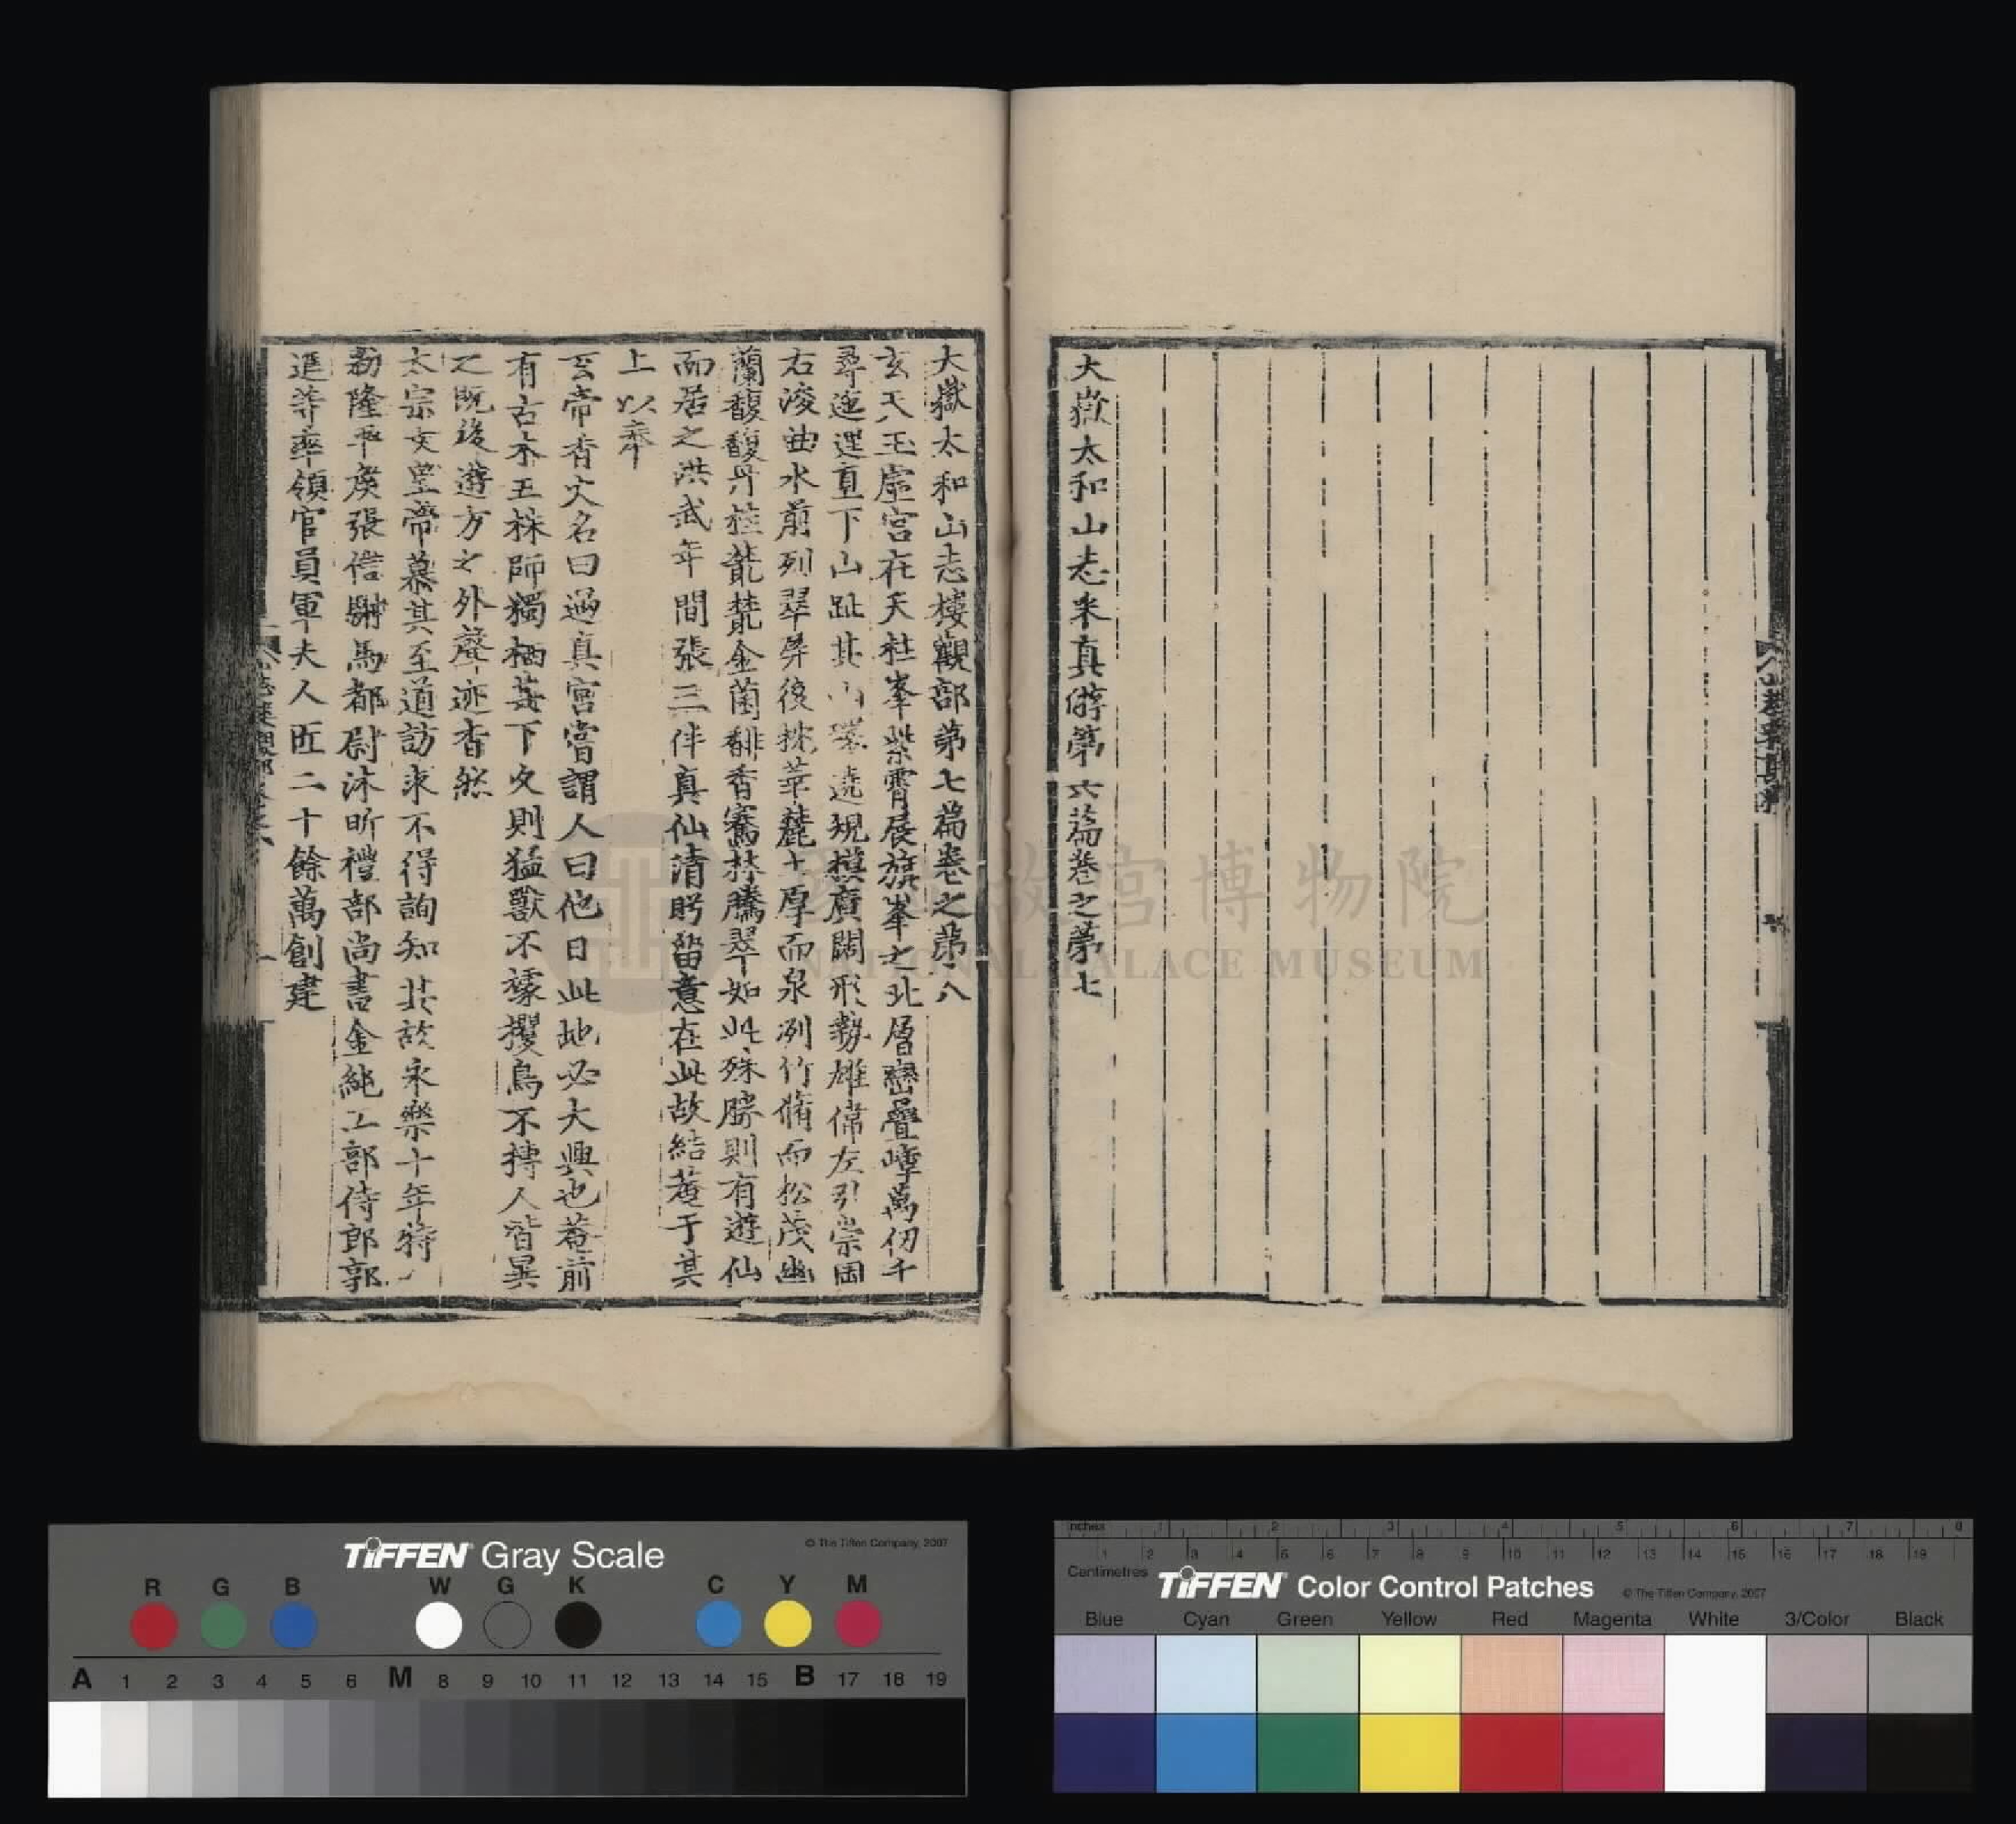 大嶽太和山志采真僲第六篇卷之第七
大嶽太和山志樓觀部第七篇卷之第八
玄天玉虛宮在天柱峯紫霄展旗峯之北層巒疊嶂萬仞千
尋迤邐直下山趾其山遶規模廣闊形勢雄偉左引崇岡
右浚曲水前列翠屏後擁華麓土厚而泉冽竹脩而松茂幽
蘭馥馥丹桂叢叢金菌馡香騫林騰翠如此殊勝則有遊仙
而居之洪武年間張三仹真仙清眄留意在此故結菴于其
上以奉
玄帝香火名曰遇真宮嘗謂人曰他日此地必大興也菴前
有古木五株師獨栖其下久則猛獸不攫鳥不搏人皆異
之既後遊方之外聲迹杳然
太宗文皇帝慕其至道訪求不得詢知其故永樂十年特
勑隆平侯張信駙馬都尉沐昕禮部尚書金純工部侍郎郭
進等率領官員軍夫人匠二十餘萬創建
故宮博物院
NATIONAL PALACE MUSEUM
TIFFEN Gray Scale
© The Tiffen Company, 2007
R G B W G K C Y M
A 1 2 3 4 5 6 M 8 9 10 11 12 13 14 15 B 17 18 19
Inches 1 2 3 4 5 6 7 8
1 2 3 4 5 6 7 8 9 10 11 12 13 14 15 16 17 18 19
Centimetres
TIFFEN Color Control Patches
© The Tiffen Company, 2007
Blue Cyan Green Yellow Red Magenta White 3/Color Black